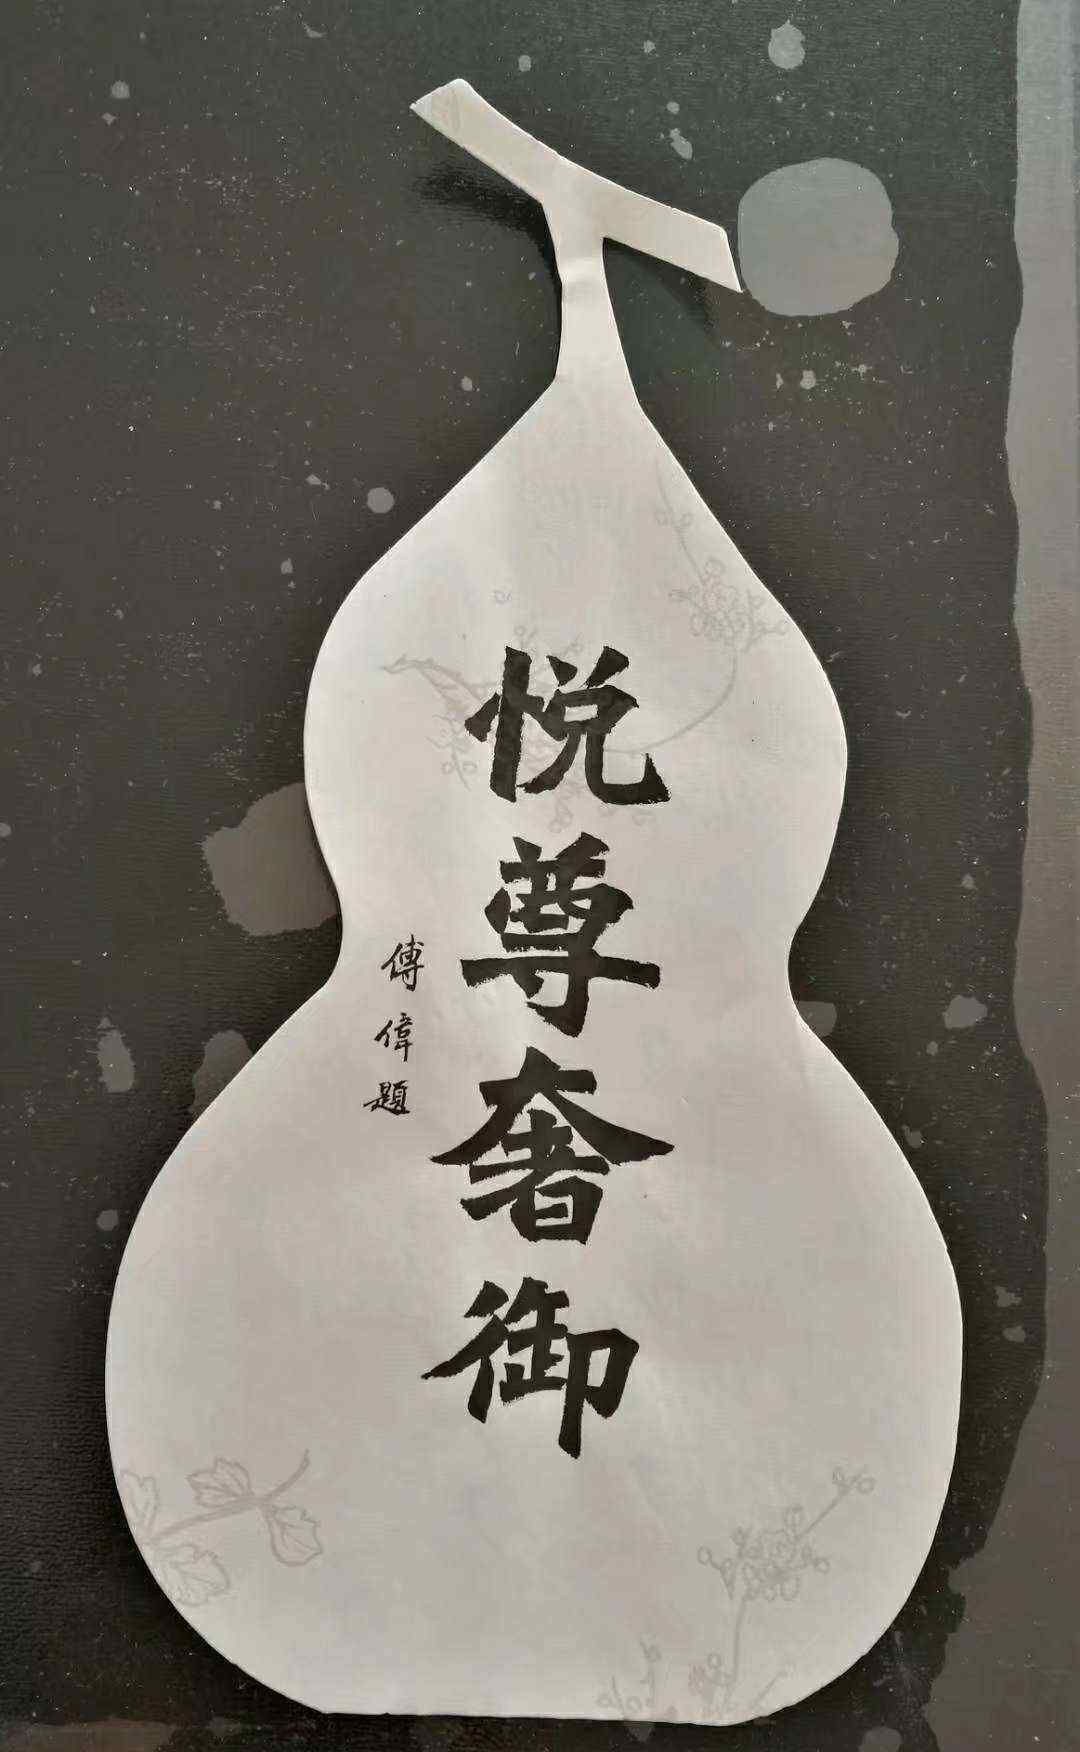 悦尊奢御
傅偉題